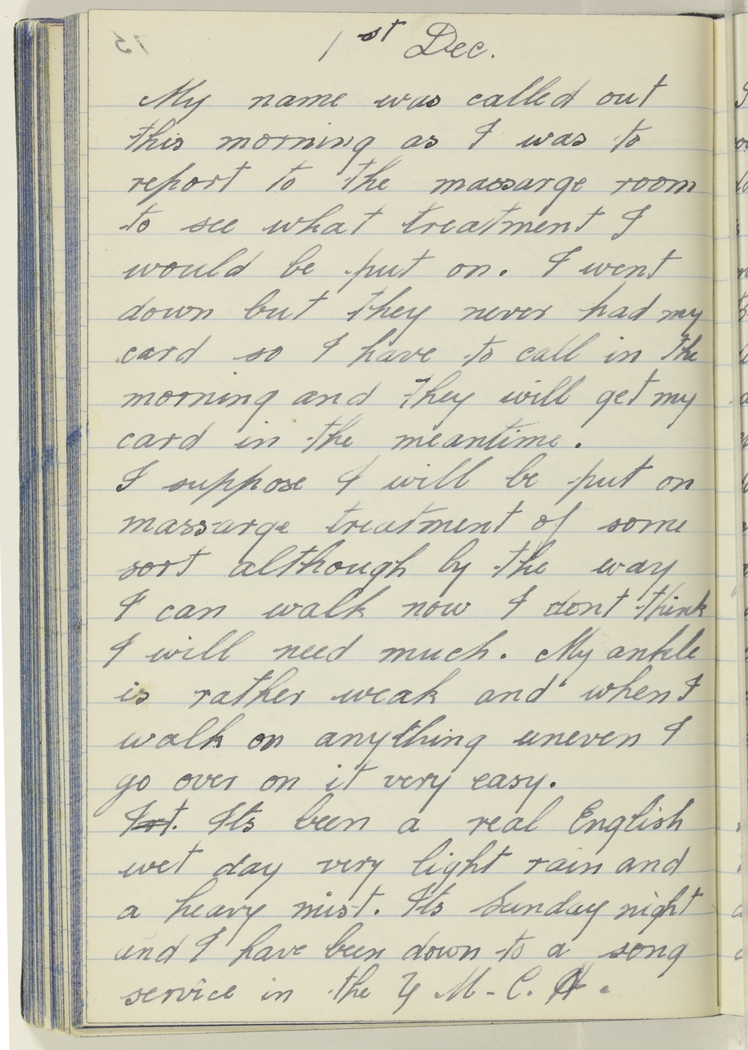 75
1st Dec.
My name was called out
this morning as I was to
report to the massarge room
to see what treatment I
would be put on. I went
down but they never had my
card so I have to call in the
morning and they will get my
card in the meantime.
I suppose I will be put on
massarge treatment of some
sort although by the way
I can walk now I dont think
I will need much. My ankle
is rather weak and when I
walk on anything uneven I
go over on it very easy.
Its been a real English
wet day very light rain and
a heavy mist. Its Sunday night
and I have been down to a song
service in the Y M-C. A.